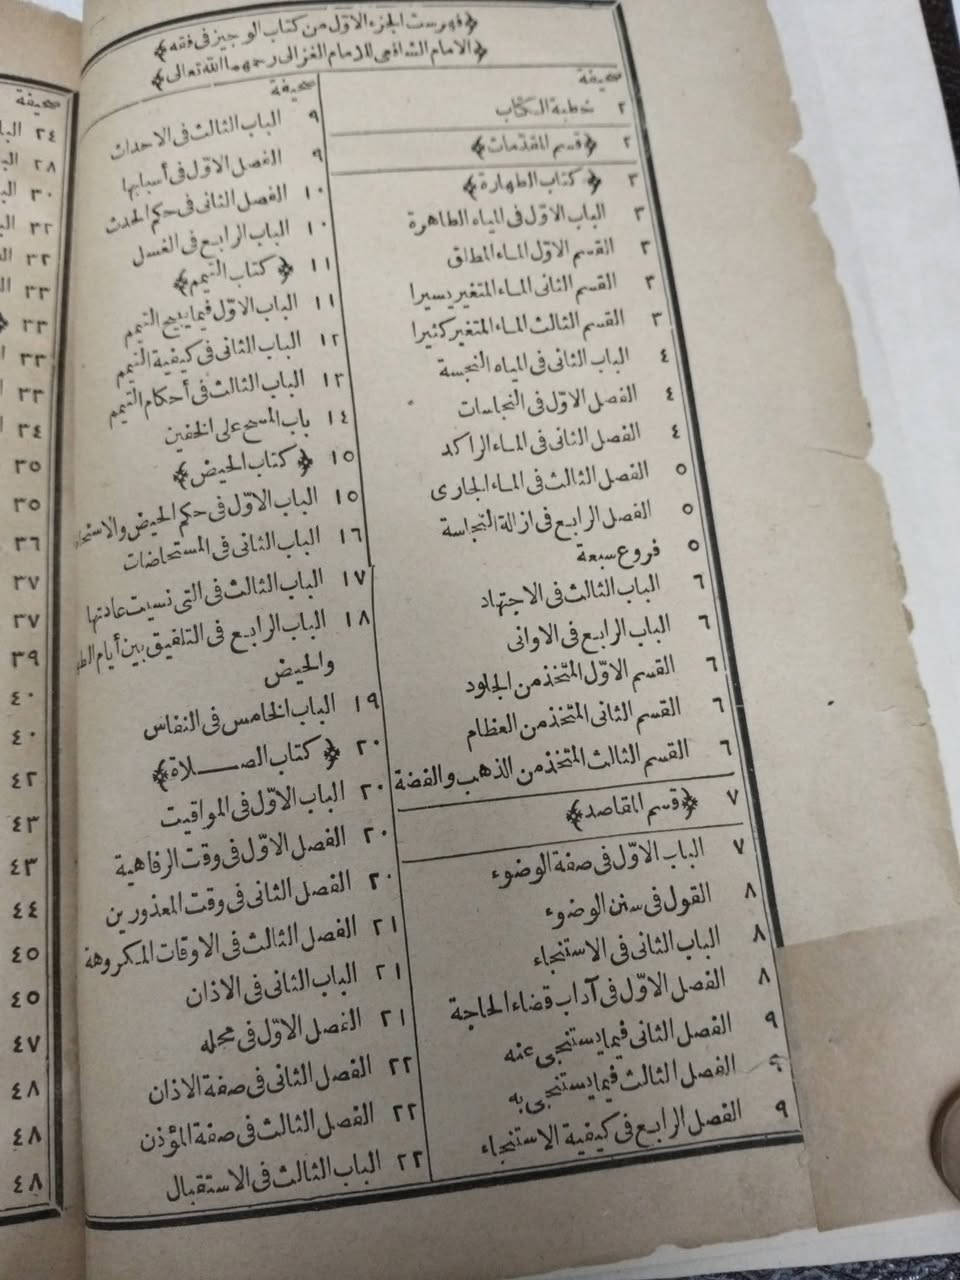 ﴿فهرست الجزء الاوّل من كتاب الوجيز فى فقه﴾
﴿الامام الشافعى للامام الغزالى رحمهما الله تعالى﴾
صحيفة
٢ خطبة الكتاب
٢ ﴿قسم المقدّمات﴾
٣ ﴿كتاب الطهارة﴾
٣ الباب الاوّل فى المياه الطاهرة
٣ القسم الاوّل الماء المطلق
٣ القسم الثانى الماء المتغير يسيرا
٣ القسم الثالث الماء المتغير كثيرا
٤ الباب الثانى فى المياه النجسة
٤ الفصل الاوّل فى النجاسات
٤ الفصل الثانى فى الماء الراكد
٥ الفصل الثالث فى الماء الجارى
٥ الفصل الرابع فى ازالة النجاسة
٥ فروع سبعة
٦ الباب الثالث فى الاجتهاد
٦ الباب الرابع فى الاوانى
٦ القسم الاوّل المتّخذ من الجلود
٦ القسم الثانى المتّخذ من العظام
٦ القسم الثالث المتّخذ من الذهب والفضة
٧ ﴿قسم المقاصد﴾
٧ الباب الاوّل فى صفة الوضوء
٨ القول فى سنن الوضوء
٨ الباب الثانى فى الاستنجاء
٨ الفصل الاوّل فى آداب قضاء الحاجة
٩ الفصل الثانى فيما يستنجى عنه
٩ الفصل الثالث فيما يستنجى به
٩ الفصل الرابع فى كيفية الاستنجاء
صحيفة
٩ الباب الثالث فى الاحداث
٩ الفصل الاوّل فى أسبابها
١٠ الفصل الثانى فى حكم الحدث
١٠ الباب الرابع فى الغسل
١١ ﴿كتاب التيمم﴾
١١ الباب الاوّل فيما يبيح التيمم
١٢ الباب الثانى فى كيفية التيمم
١٣ الباب الثالث فى أحكام التيمم
١٤ باب المسح على الخفين
١٥ ﴿كتاب الحيض﴾
١٥ الباب الاوّل فى حكم الحيض
١٦ الباب الثانى فى المستحاضات
١٧ الباب الثالث فى التى نسيت عادتها
١٨ الباب الرابع فى التلفيق بين أيام
والحيض
١٩ الباب الخامس فى النفاس
٢٠ ﴿كتاب الصلاة﴾
٢٠ الباب الاوّل فى المواقيت
٢٠ الفصل الاوّل فى وقت الرفاهية
٢٠ الفصل الثانى فى وقت المعذورين
٢١ الفصل الثالث فى الاوقات المكروهة
٢١ الباب الثانى فى الاذان
٢١ الفصل الاوّل فى محله
٢٢ الفصل الثانى فى صفة الاذان
٢٢ الفصل الثالث فى صفة المؤذن
٢٣ الباب الثالث فى الاستقبال
صحيفة
٢٤
٢٨
٣٠
٣٢
٣٢
٣٣
٣٣
٣٣
٣٣
٣٤
٣٥
٣٥
٣٦
٣٧
٣٧
٣٩
٤٠
٤٠
٤٢
٤٣
٤٣
٤٤
٤٥
٤٥
٤٧
٤٨
٤٨
٤٨